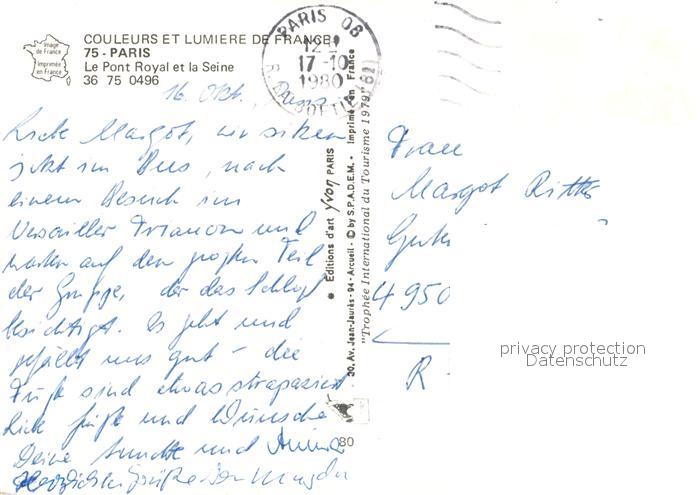 Image de France
Imprimée en France
COULEURS ET LUMIERE DE FRANCE
75 - PARIS
Le Pont Royal et la Seine
36 75 0496
PARIS 08
17-10
1980
16. Okt. Paris
Liebe Margot, wir sitzen
jetzt im Bus, nach
einem Besuch im
Versailler Trianon und
warten auf den großen Teil
der Gruppe, der das Schloß
besichtigt. Es geht und
gefällt uns gut – die
Füße sind etwas strapaziert.
Liebe Grüße und Wünsche
Deine und
Herzliche Grüße
Editions d'art Yvon PARIS
30, Av. Jean-Jaurès - 94 - Arcueil - © by S.P.A.D.E.M. • Imprimé en France
"Trophée International du Tourisme 1979"
Frau
Margot
495
R
80
privacy protection
Datenschutz